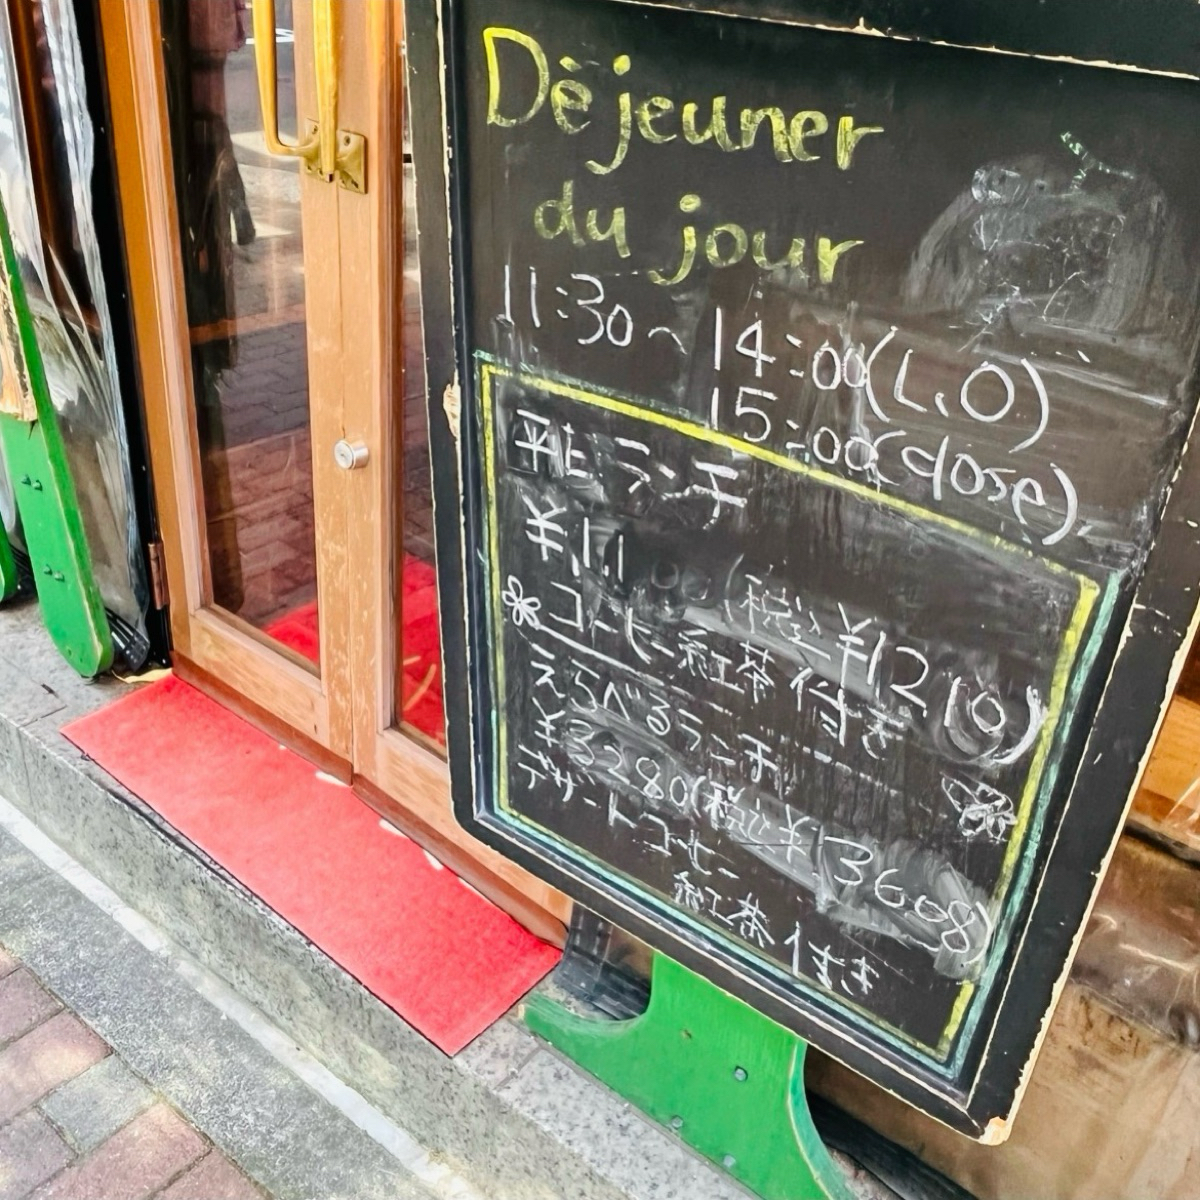 Déjeuner
du jour
11:30〜14:00(L.O)
15:00(close)
平日ランチ
¥1,100(税込¥1210)
コーヒー紅茶付き
えらべるランチ
¥3280(税込¥3608)
デザートコーヒー
紅茶付き